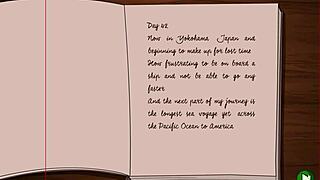 Day 42
Now in Yokohama Japan and
beginning to make up for lost time
How frustrating to be on board a
ship and not be able to go any
faster
And the next part of my journey is
the longest sea voyage yet across
the Pacific Ocean to America